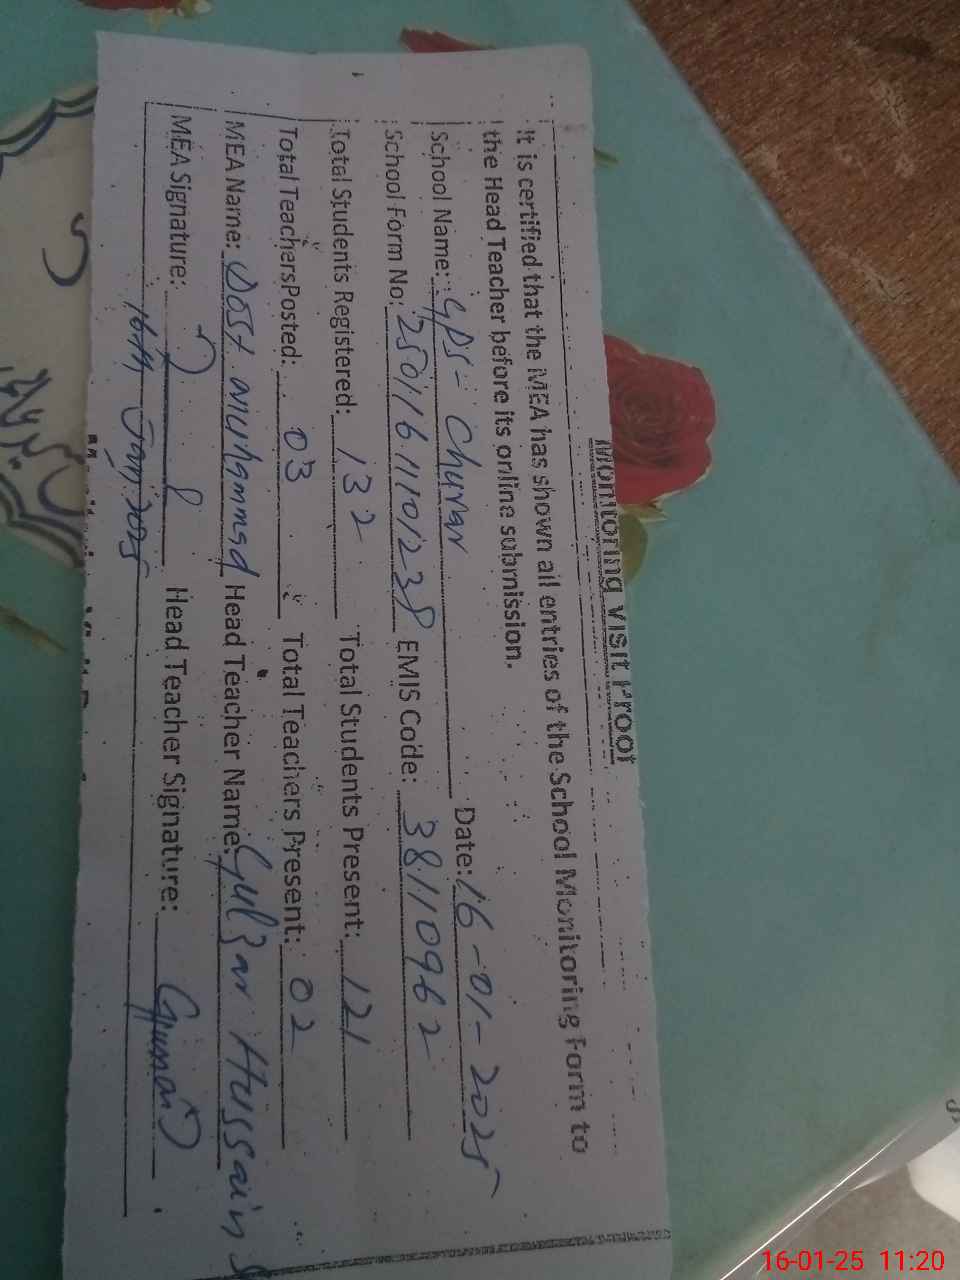 Monitoring Visit Proof
It is certified that the MEA has shown all entries of the School Monitoring Form to
the Head Teacher before its online submission.
School Name: GPS - Churar Date: 16-01-2025
School Form No: 250116110238 EMIS Code: 38110962
Total Students Registered: 132 Total Students Present: 121
Total Teachers Posted: 03 Total Teachers Present: 02
MEA Name: Dost Muhammad Head Teacher Name: Gulzar Hussain
MEA Signature: Head Teacher Signature:
16th Jan, 2025
16-01-25 11:20